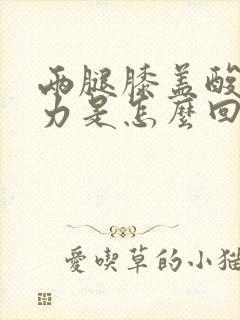 兩腿膝盖酸
力是怎麼回
愛喫草的小猫